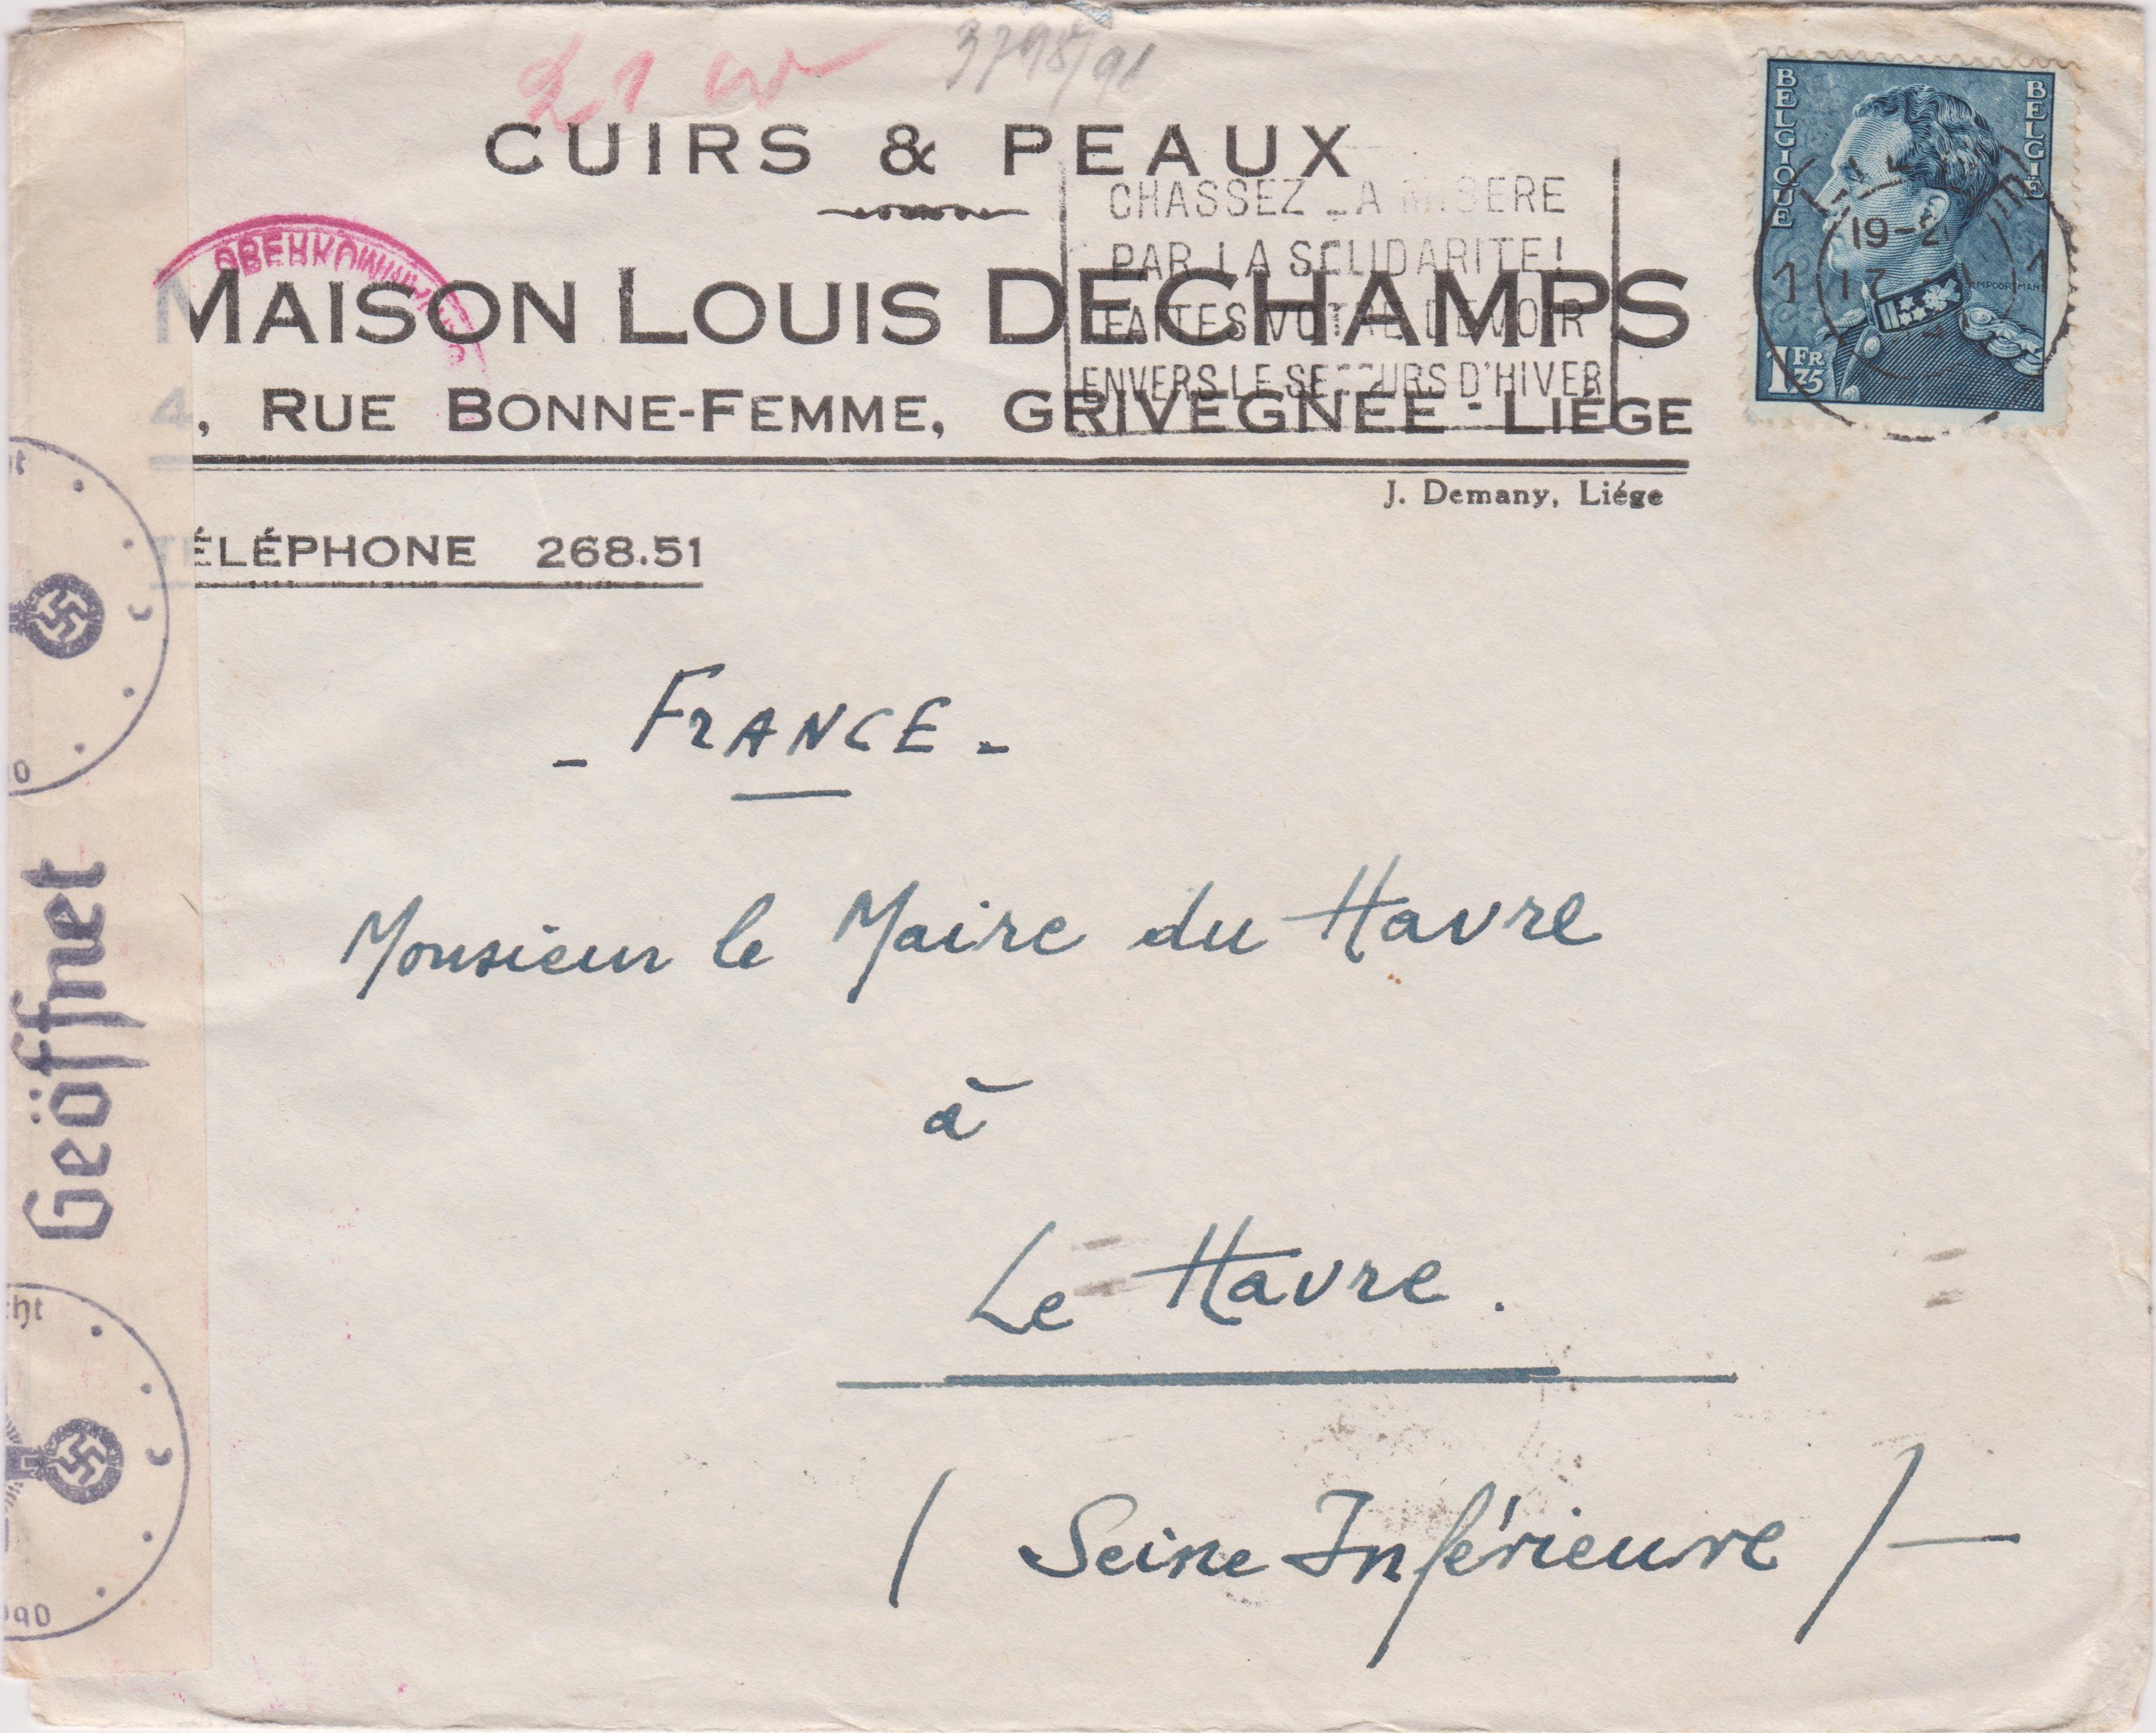 3798/91
CUIRS & PEAUX
CHASSEZ LA MISERE
PAR LA SOLIDARITE!
FAITES VOTRE DEVOIR
ENVERS LE SECOURS D'HIVER
MAISON LOUIS DECHAMPS
4, RUE BONNE-FEMME, GRIVEGNÉE - LIÉGE
J. Demany, Liége
TÉLÉPHONE 268.51
BELGIQUE
BELGIË
1 FR 75
19-2
17
1
1
- FRANCE -
Monsieur le Maire du Havre
à
Le Havre.
( Seine Inférieure )—
Geöffnet